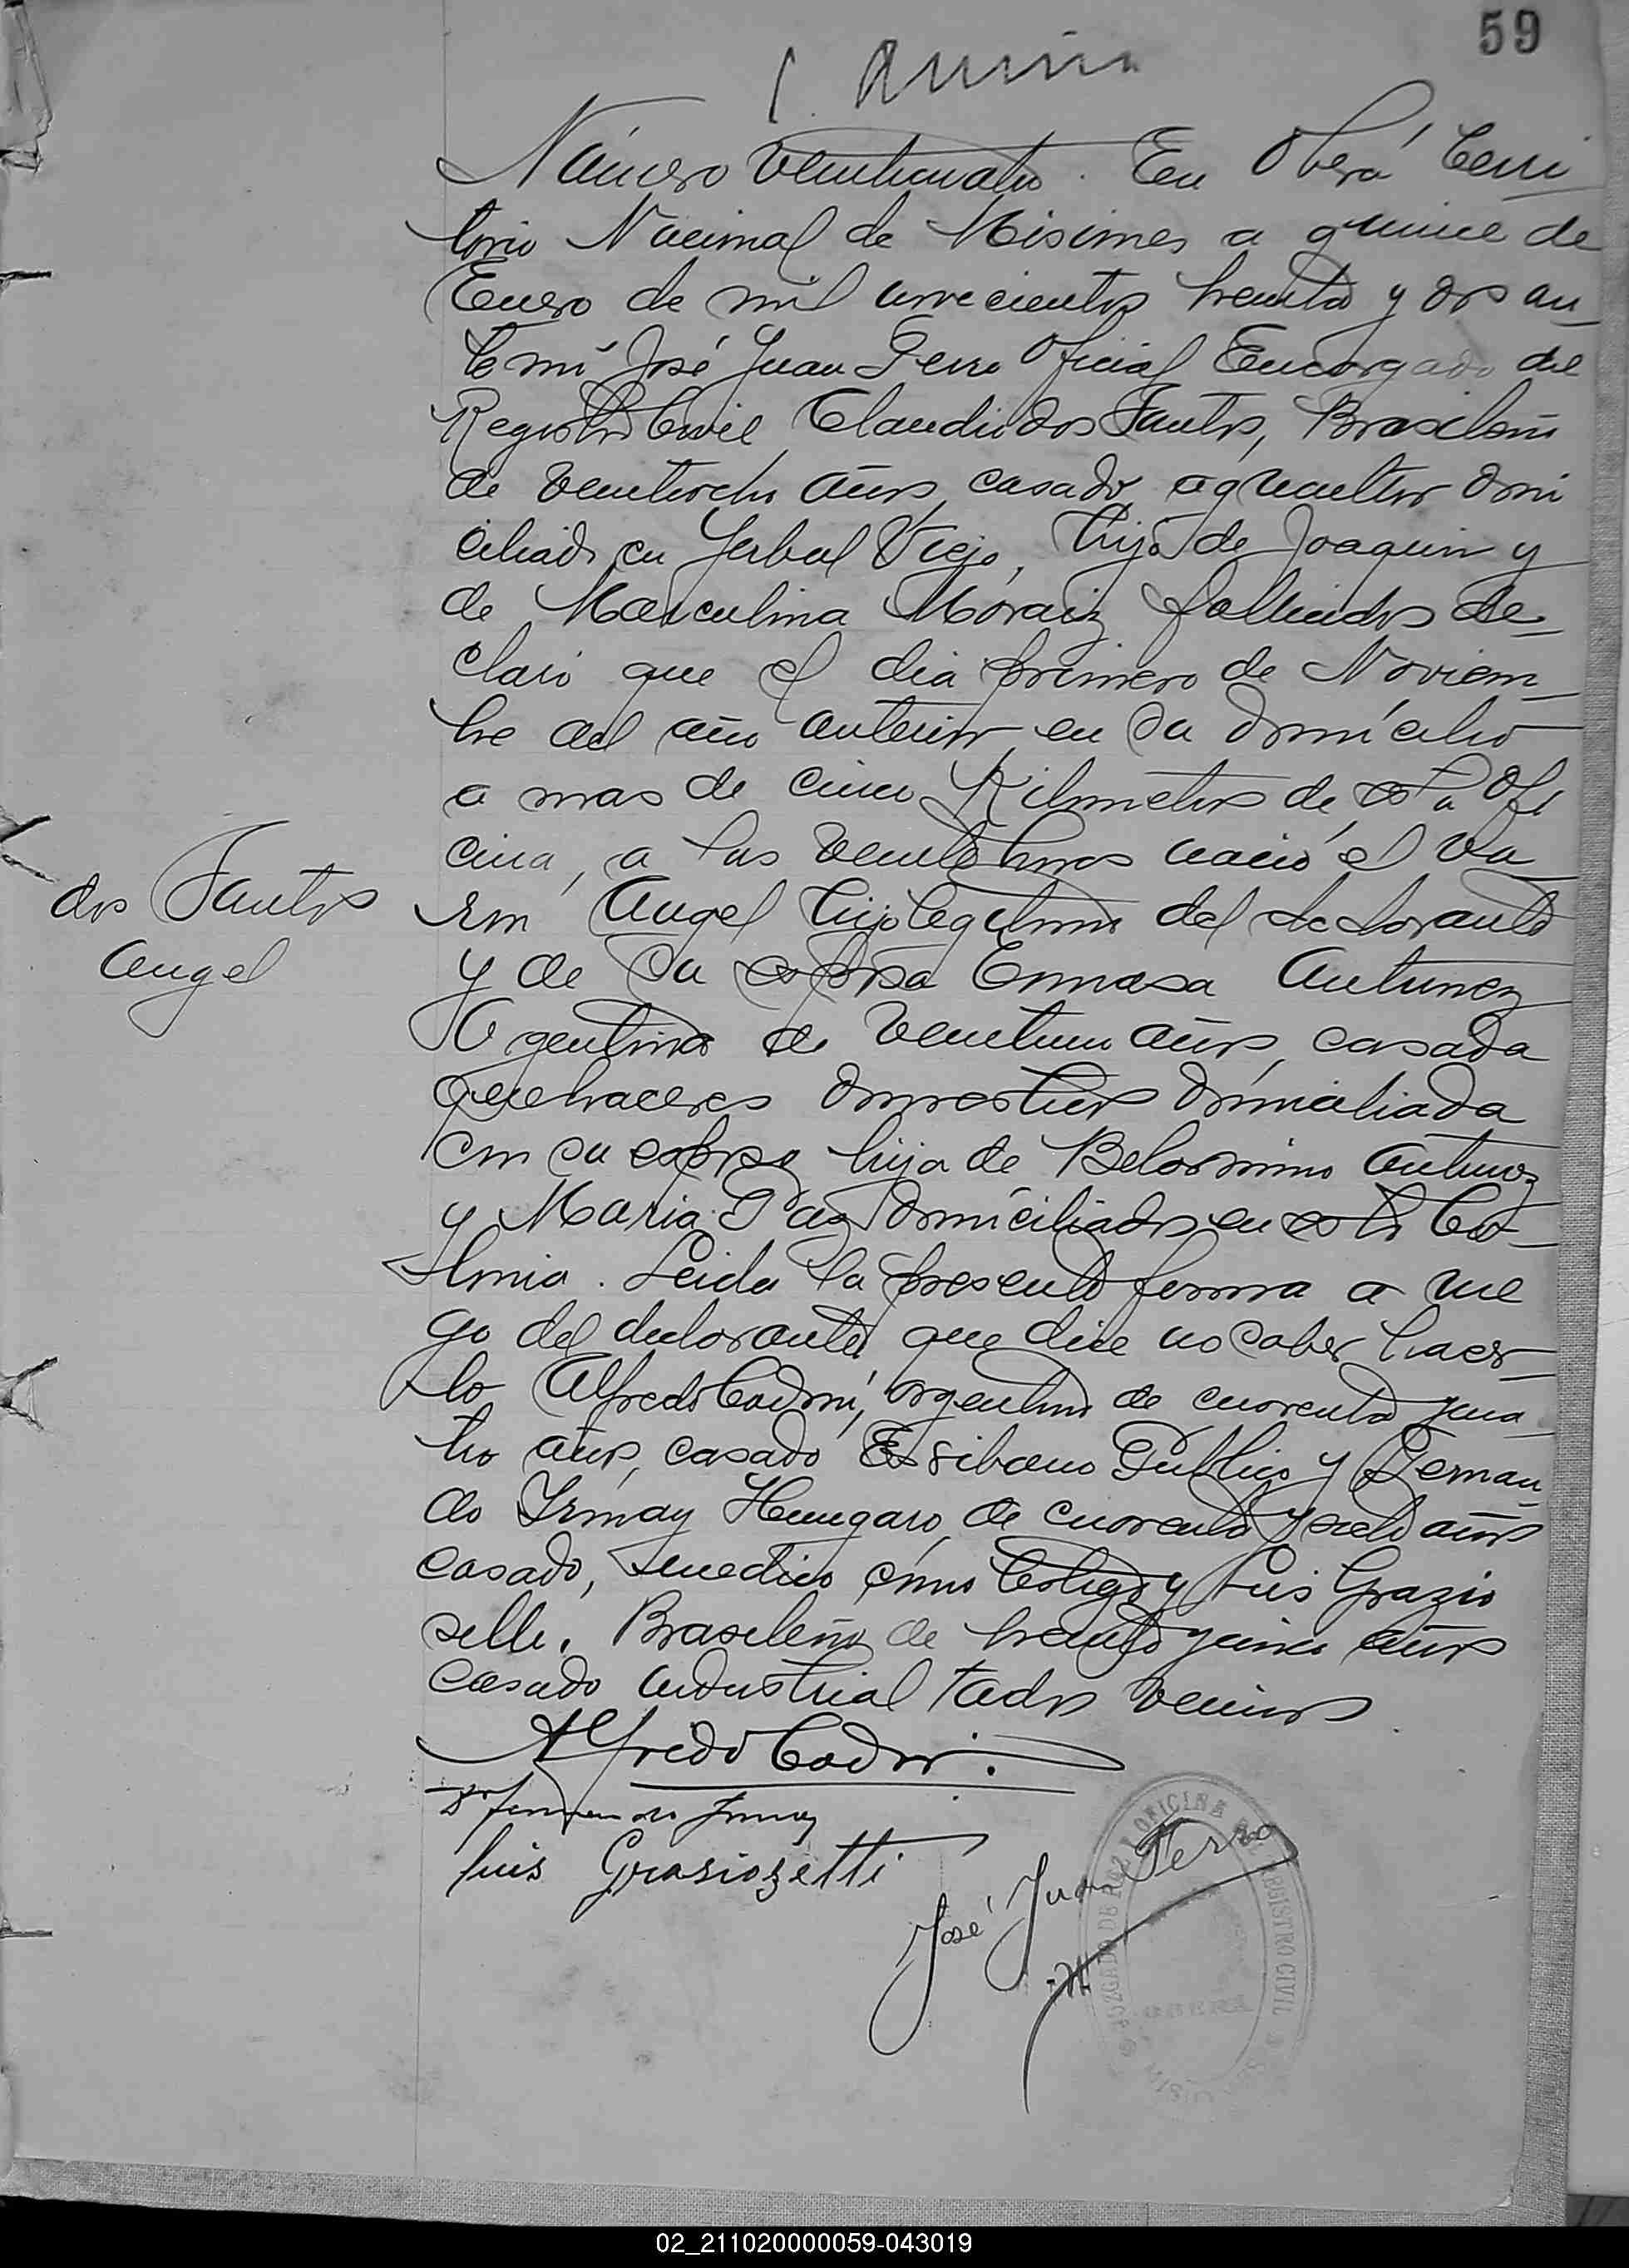 59
Número veinticuatro. En Oberá Terri
torio Nacional de Misiones a quince de
Enero de mil novecientos treinta y dos an-
te mi José Juan Ferro Oficial Encargado del
Registro Civil, Claudio dos Santos, Brasileño
de veintiocho años, casado, agricultor domi
ciliado en Yerbal Viejo, hijo de Joaquin y
de Masculina Moraiz fallecidos de-
claró que el dia primero de Noviem-
bre del año anterior, en su domicilio
a mas de cinco Kilometros de esta Ofi
cina, a las veinte horas nació el va-
rón Angel hijo legitimo del declarante
y de su esposa Ermosa Antunez
Argentina de veintiun años, casada
quehaceres domesticos domiciliada
con su esposo hija de Belormino Antunez
y Maria Paz domiciliados en esta Co-
lonia. Leida la presente firma a rue
go del declarante, que dice no saber hacer-
lo Alfredo Codrri, argentino de cuarenta y cua-
tro años, casado Escribano Publico y Fernan-
do Irmay Hungaro, de cuarenta y siete años
casado, medico, como testigo y Luis Grazio
selli. Brasileño de treinta y cinco años
casado industrial todos vecinos
dos Santos
Angel
Alfredo Codrri.
Dr Fernando Irmay
Luis Graziozetti
José Juan Ferro
OFICINA DEL REGISTRO CIVIL
JUZGADO DE PAZ
OBERÁ
02_211020000059-043019